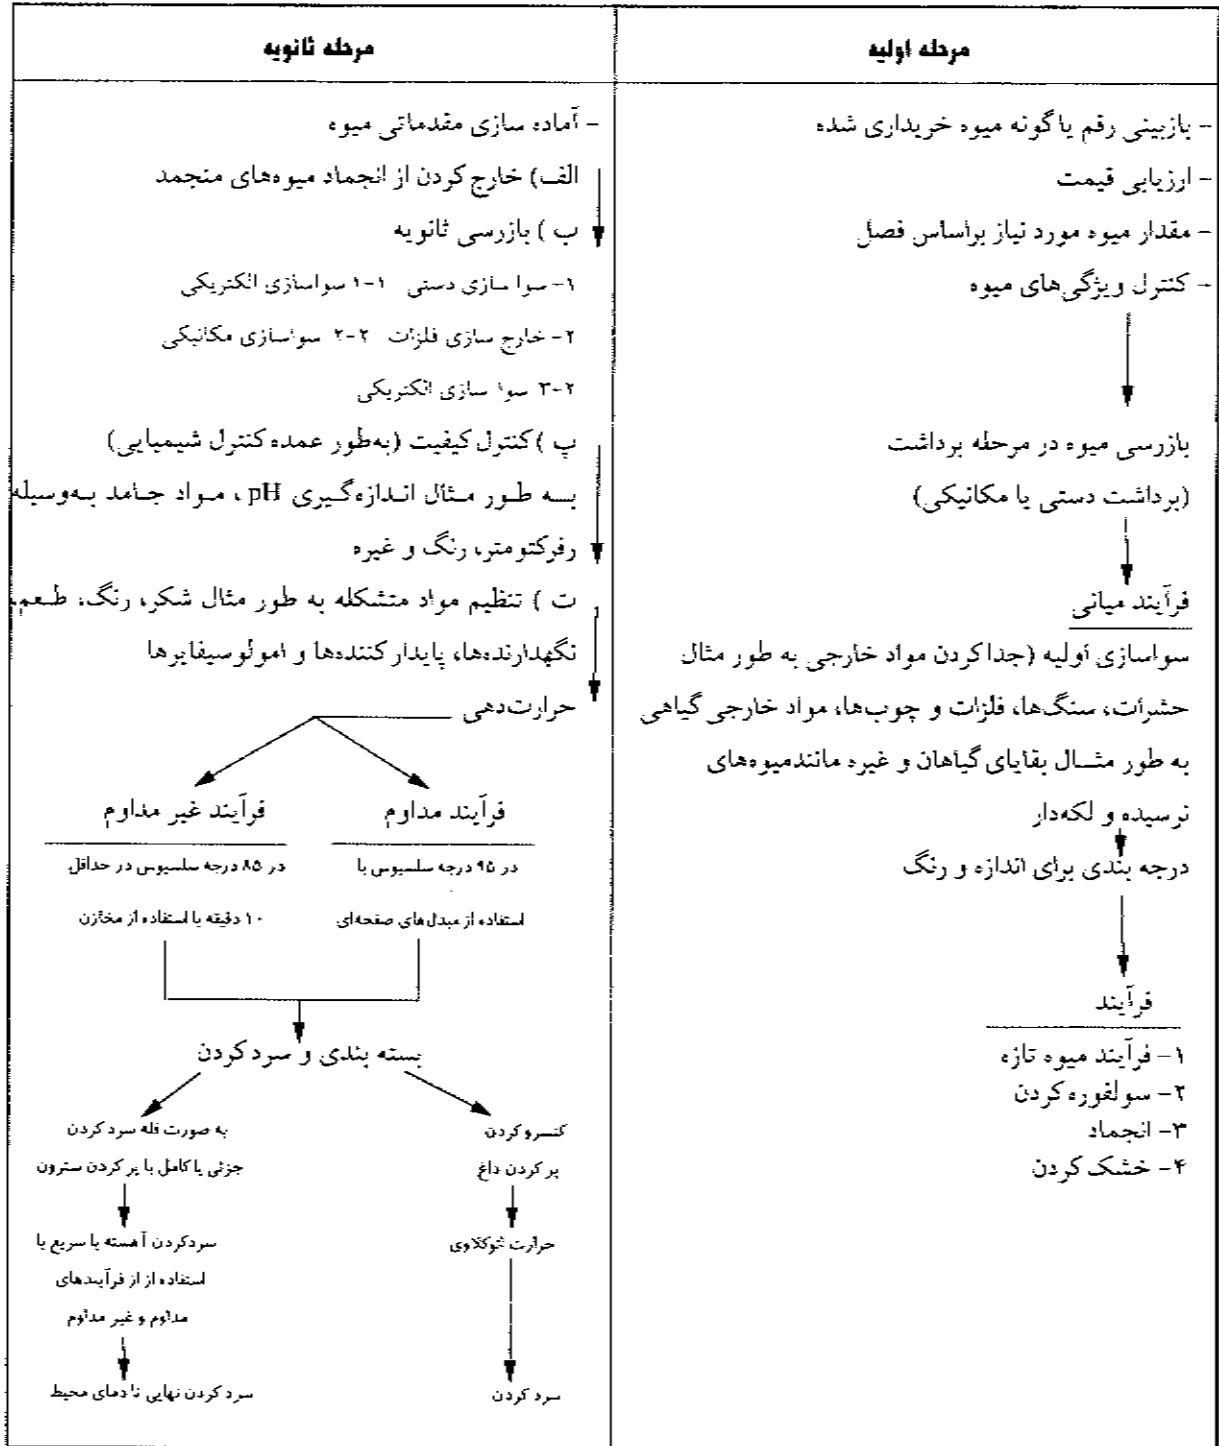 مرحله اولیه
- بازبینی رقم یا گونه میوه خریداری شده
- ارزیابی قیمت
- مقدار میوه مورد نیاز براساس فصل
- کنترل ویژگی‌های میوه
بازرسی میوه در مرحله برداشت
(برداشت دستی یا مکانیکی)
فرآیند میانی
سواسازی اولیه (جداکردن مواد خارجی به طور مثال
حشرات، سنگ‌ها، فلزات و چوب‌ها، مواد خارجی گیاهی
به طور مثال بقایای گیاهان و غیره مانندمیوه‌های
نرسیده و لکه‌دار
درجه بندی برای اندازه و رنگ
فرآیند
۱- فرآیند میوه تازه
۲- سولفوره کردن
۳- انجماد
۴- خشک کردن
مرحله ثانویه
- آماده سازی مقدماتی میوه
الف) خارج کردن از انجماد میوه‌های منجمد
ب ) بازرسی ثانویه
۱- سوا سازی دستی ۱-۱ سواسازی الکتریکی
۲- خارج سازی فلزات ۲-۲ سواسازی مکانیکی
۳-۲ سوا سازی الکتریکی
پ ) کنترل کیفیت (به‌طور عمده کنترل شیمیایی)
بـه طـور مـثال انـدازه‌گـیری pH ، مـواد جـامد بـه‌وسیله
رفرکتومتر، رنگ و غیره
ت ) تنظیم مواد متشکله به طور مثال شکر، رنگ، طـعم،
نگهدارنده‌ها، پایدار کننده‌ها و امولوسیفایرها
حرارت‌دهی
فرآیند مداوم
در ۹۵ درجه سلسیوس با
استفاده از مبدل‌های صفحه‌ای
فرآیند غیر مداوم
در ۸۵ درجه سلسیوس در حداقل
۱۰ دقیقه با استفاده از مخازن
بسته بندی و سرد کردن
کنسرو کردن
پر کردن داغ
حرارت اتوکلاوی
سرد کردن
به صورت فله سرد کردن
جزئی یا کامل با پر کردن سترون
سرد کردن آهسته یا سریع با
استفاده از از فرآیندهای
مداوم و غیر مداوم
سرد کردن نهایی تا دمای محیط